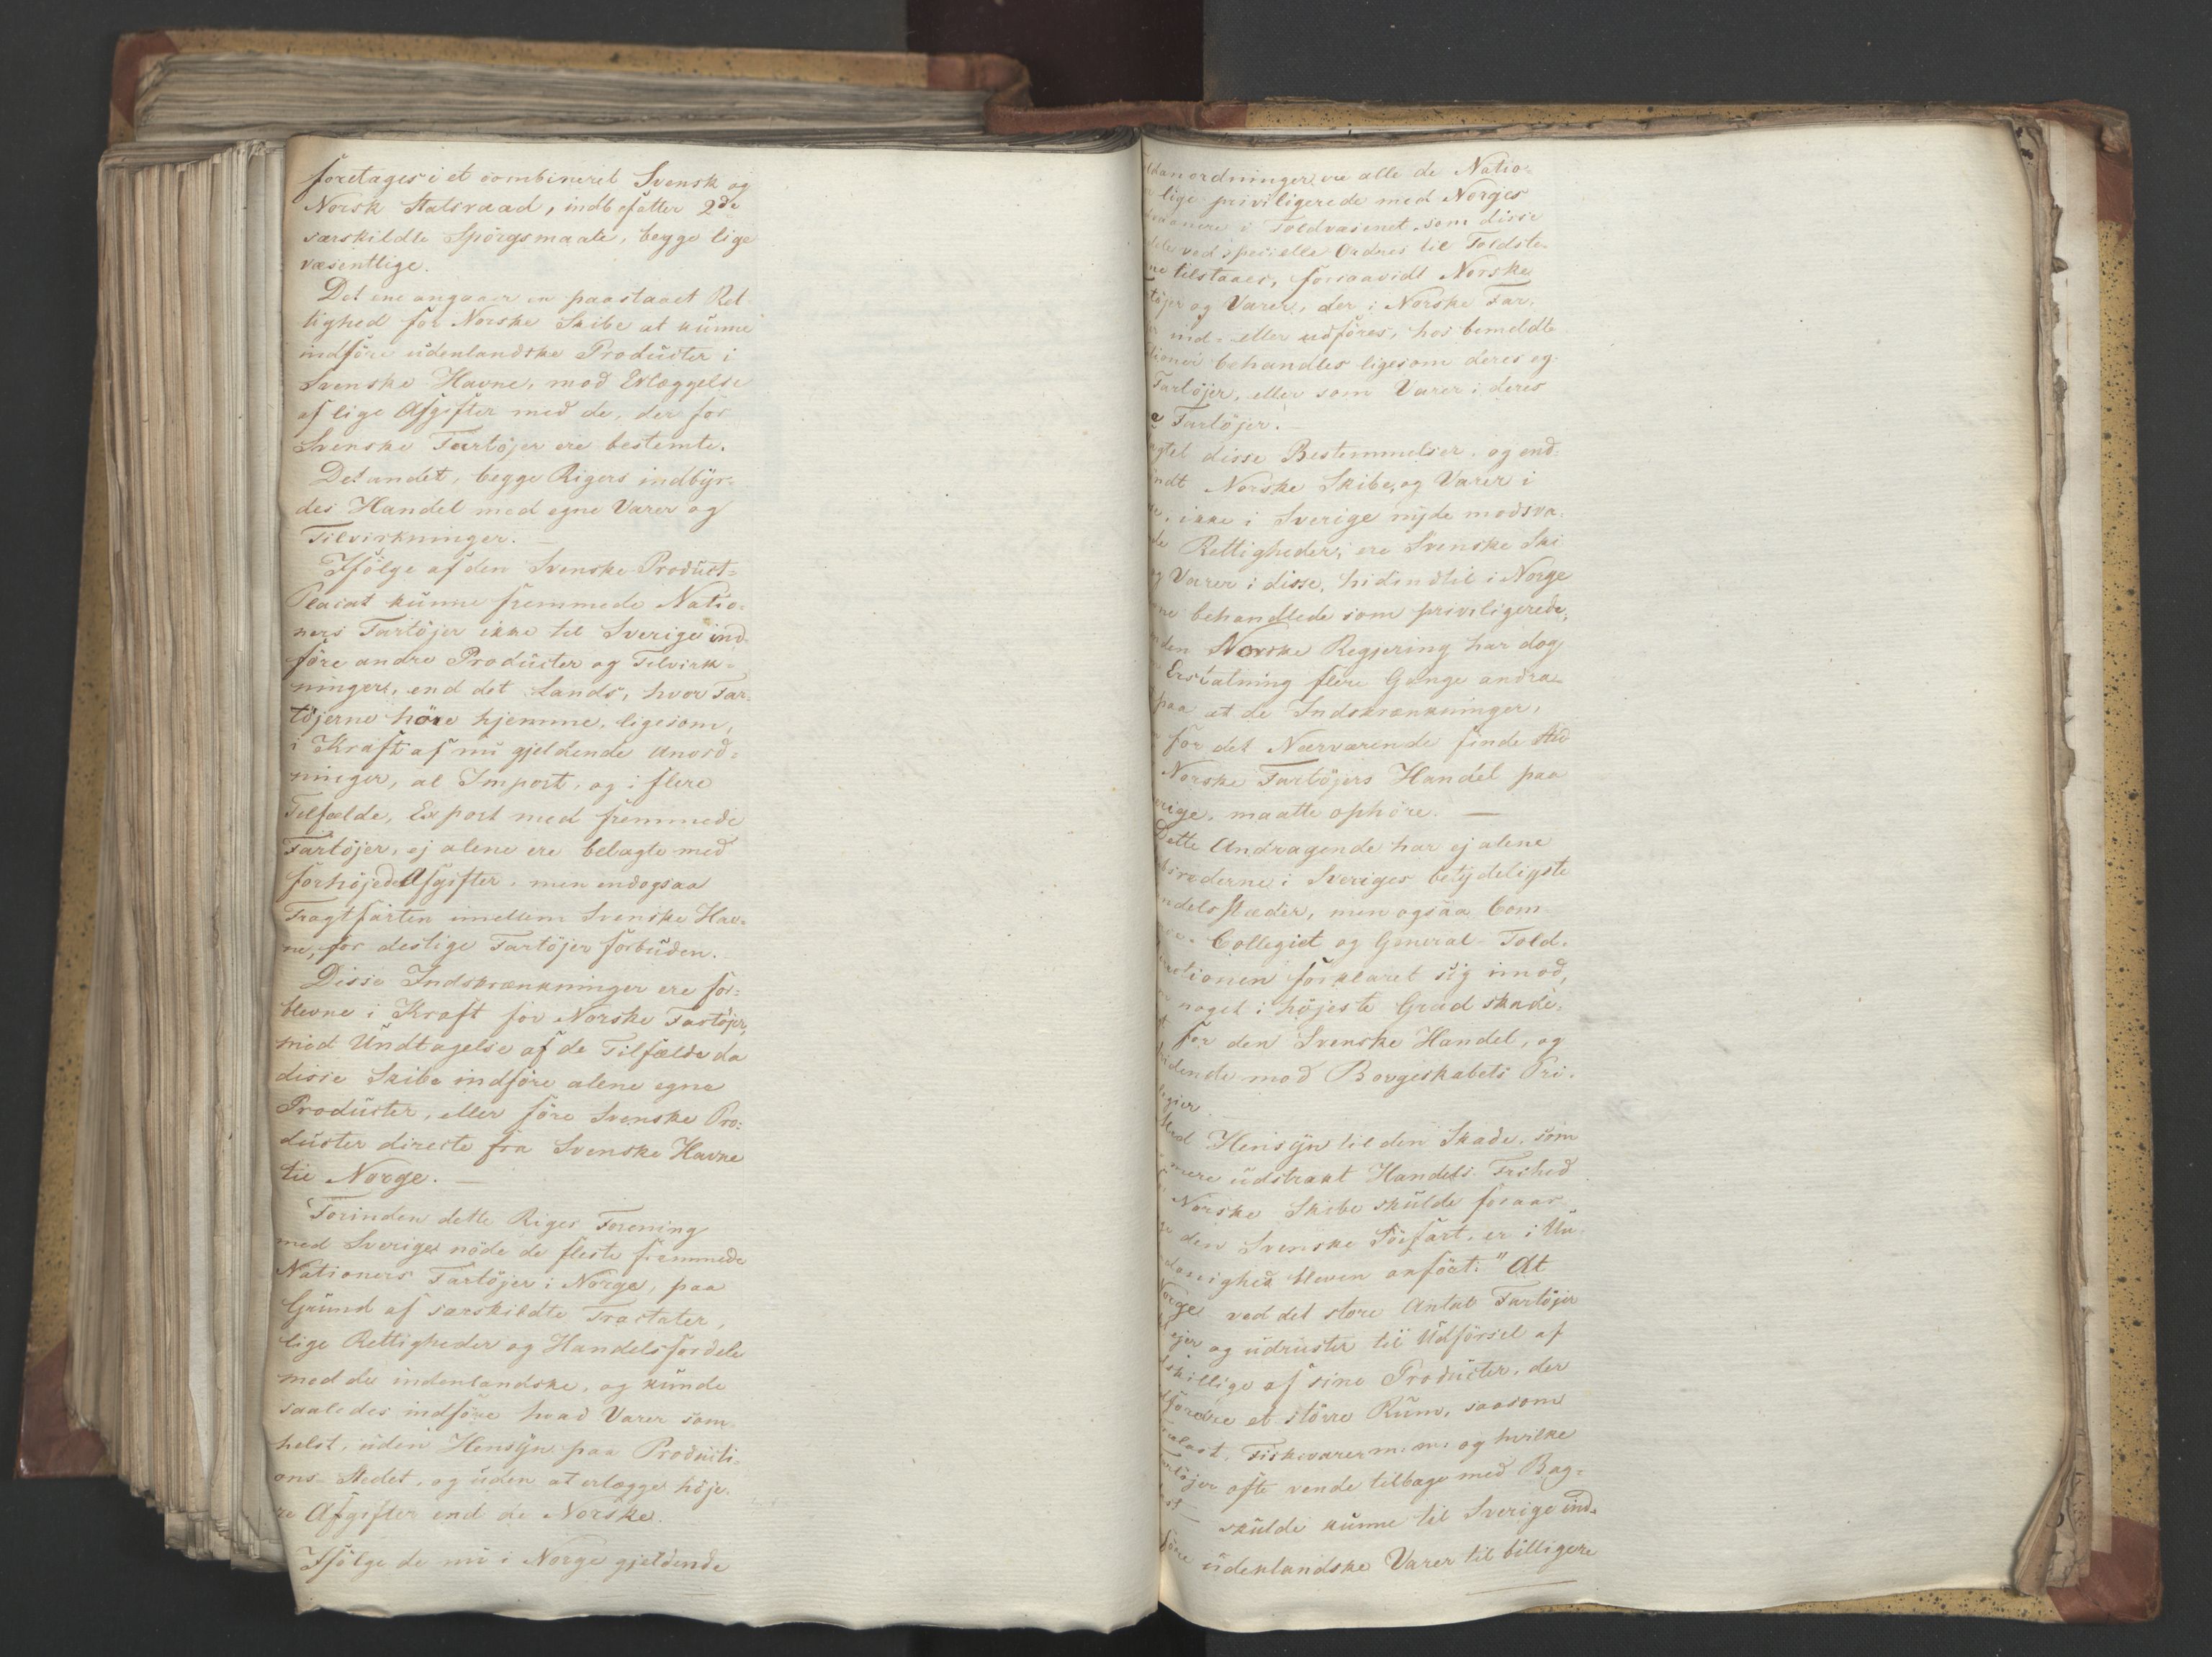 foretages i et combineret Svensk og
Norsk Statsraad, indbefatter 2de
særskildte Spörgsmaale, begge lige
væsentlige.
Det ene angaaer en paastaaet Ret-
tighed for Norske Skibe at kunne
indföre udenlandske Producter i
Svenske Havne, mod Erlæggelse
af lige Afgifter med de, der for
Svenske Fartöjer ere bestemte.
Det andet, begge Rigers indbyr-
des Handel med egne Varer og
Tilvirkninger. —
Ifölge af den Svenske Product-
Placat kunne fremmede Natio-
ners Fartöjer ikke til Sverige ind-
före andre Producter og Tilvirk-
ninger, end det Lands, hvor Far-
töjerne höre hjemme, ligesom,
i Kraft af nu gjeldende Anord-
ninger, al Import, og i flere
Tilfælde, Export med fremmede
Fartöjer, ej alene ere belagte med
forhöjede Afgifter, men endogsaa
Fragtfarten imellem Svenske Hav-
ne, for deslige Fartöjer forbuden.
Disse Indskrænkninger ere for-
blevne i Kraft for Norske Fartöjer,
med Undtagelse af de Tilfælde da
disse Skibe indföre alene egne
Producter, eller före Svenske Pro-
ducter directe fra Svenske Havne
til Norge. —
Forinden dette Riges Forening
med Sverige nöde de fleste fremmede
Nationers Fartöjer i Norge, paa
Grund af særskildte Tractater,
lige Rettigheder og Handelsfordele
med de indenlandske, og kunde
saaledes indföre hvad Varer som-
helst, uden Hensÿn paa Producti-
ons-Stedet, og uden at erlægge höje-
re Afgifter end de Norske.
Ifölge de nu i Norge gjeldende
ldanordninger ere alle de Natio-
lige priviligerede med Norges
i Toldvæsenet, som disse
ved specielle Ordres til Toldste-
ne tilstaaes, forsaavidt Norske
töjer og Varer, der i Norske Far-
ind- eller udföres, hos bemeldte
tioner behandles ligesom deres eg-
Fartöjer, eller som Varer i deres
e Fartöjer. —
agtet disse Bestemmelser, og end-
ndt Norske Skibe, og Varer i
se, ikke i Sverige nyde modsva-
de Rettigheder, ere Svenske Ski
og Varer i disse, hidindtil i Norge
ne behandlede som priviligerede,
den Norske Regjering har dog
Erstatning flere Gange andra-
paa at de Indskrænkninger,
for det Nærværende finde Sted
Norske Fartöjers Handel paa
erige, maatte ophöre. —
Dette Andragende har ej alene
i Sveriges betydeligste
ndelsstæder, men ogsaa Com-
ce-Collegiet og General-Told-
ectionen forklaret sig imod,
noget i höjeste Grad skade-
for den Svenske Handel, og
ridende mod Borgeskabets Pri-
legier.
Med Hensÿn til den Skade, som
mere udstrakt Handels-Frihed
Norske Skibe skulde foraar-
ge den Svenske Söefart, er i Un-
danighed bleven anfört: "At
Norge ved det store Antal Fartöjer
ejer og udruster til Udförsel af
skillige af sine Producter, der
dfordre et större Rum, saasom
Fiskevarer m. m. og hvilke
artöjer ofte vende tilbage med Bag-
ast — skulde kunne til Sverige ind-
före udenlandske Varer til billigere